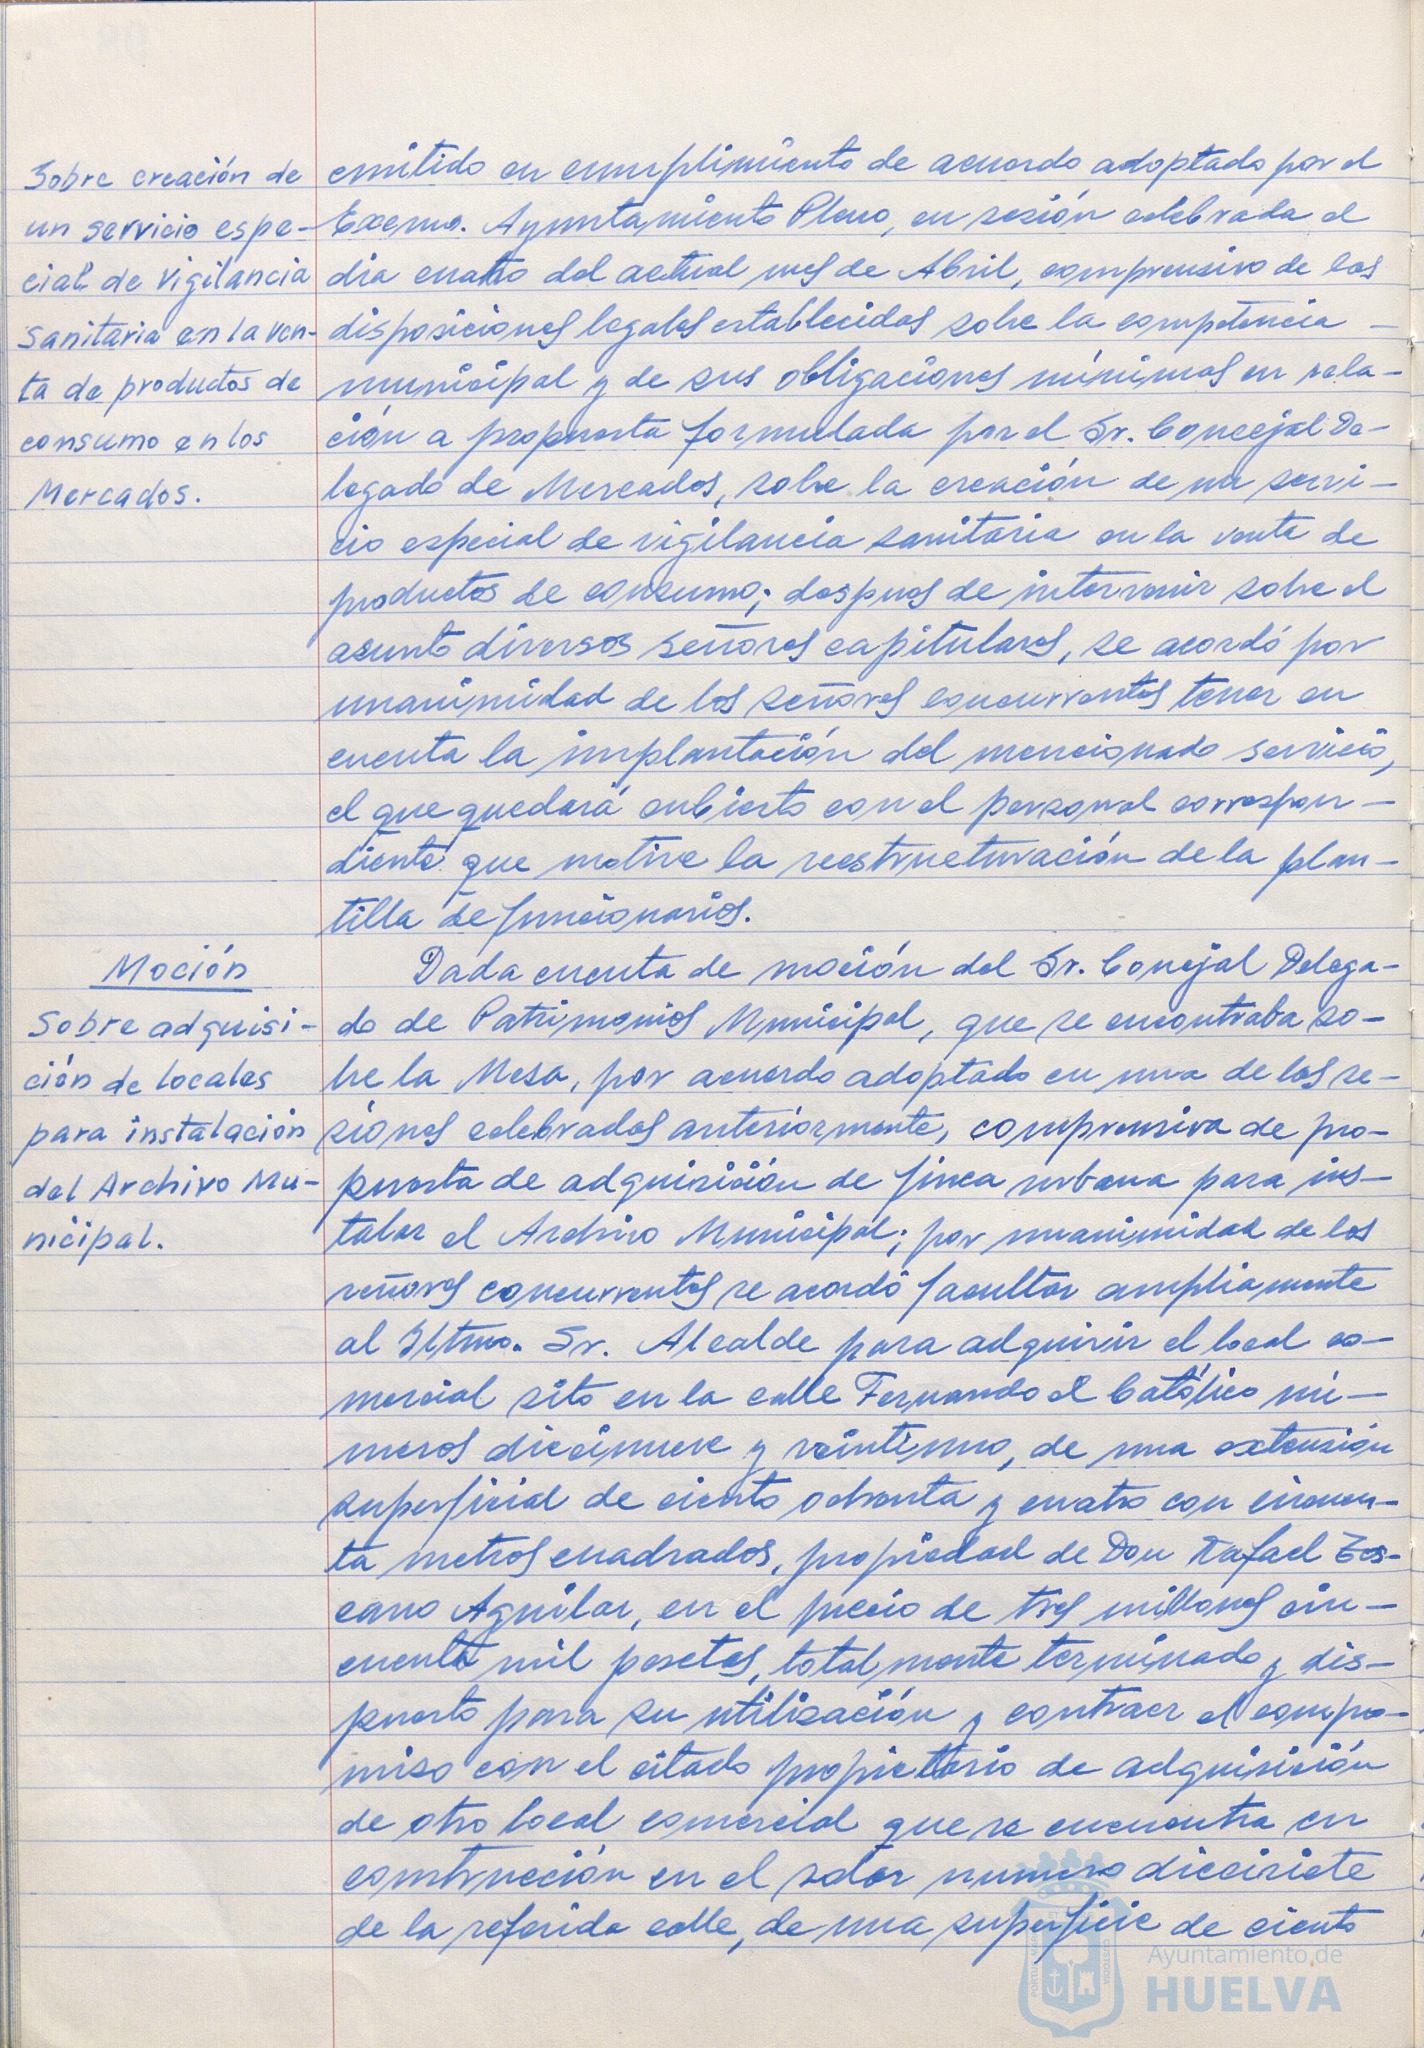 Sobre creación de
un servicio espe-
cial de vigilancia
sanitaria en la ven-
ta de productos de
consumo en los
Mercados.
emitido en cumplimiento de acuerdo adoptado por el
Excmo. Ayuntamiento Pleno, en sesión celebrada el
dia cuatro del actual mes de Abril, comprensivo de las
disposiciones legales establecidas sobre la competencia -
municipal y de sus obligaciones mínimas en rela-
ción a propuesta formulada por el Sr. Concejal De-
legado de Mercados, sobre la creación de un servi-
cio especial de vigilancia sanitaria en la venta de
productos de consumo; despues de intervenir sobre el
asunto diversos señores capitulares, se acordó por
unanimidad de los señores concurrentes tener en
cuenta la implantación del mencionado servicio,
el que quedará cubierto con el personal correspon-
diente que motive la reestructuración de la plan-
tilla de funcionarios.
Moción
Sobre adquisi-
ción de locales
para instalación
del Archivo Mu-
nicipal.
Dada cuenta de moción del Sr. Concejal Delega-
do de Patrimonios Municipal, que se encontraba so-
bre la Mesa, por acuerdo adoptado en una de las se-
siones celebradas anteriormente, comprensiva de pro-
puesta de adquisición de finca urbana para ins-
talar el Archivo Municipal; por unanimidad de los
señores concurrentes se acordó facultar ampliamente
al Iltmo. Sr. Alcalde para adquirir el local co-
mercial sito en la calle Fernando el Católico nú-
meros diecinueve y veintiuno, de una extensión
superficial de ciento ochenta y cuatro con cincuen-
ta metros cuadrados, propiedad de Don Rafael
cano Aguilar, en el precio de tres millones cin-
cuenta mil pesetas, totalmente terminado y dis-
puesto para su utilización y contraer el compro-
miso con el citado propietario de adquisición
de otro local comercial que se encuentra en
construcción en el solar numero diecisiete
de la referida calle, de una superficie de ciento
Ayuntamiento de
HUELVA